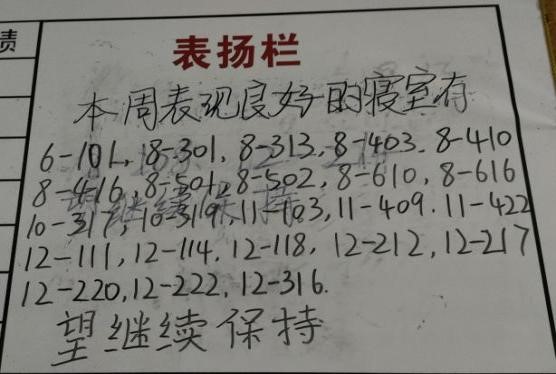 绩
表扬栏
本周表现良好的寝室有
6-101, 8-301, 8-313, 8-403, 8-410
8-416, 8-501, 8-502, 8-610, 8-616
10-317, 10-319, 11-103, 11-409. 11-422
12-111, 12-114, 12-118, 12-212, 12-217
12-220, 12-222, 12-316.
望继续保持